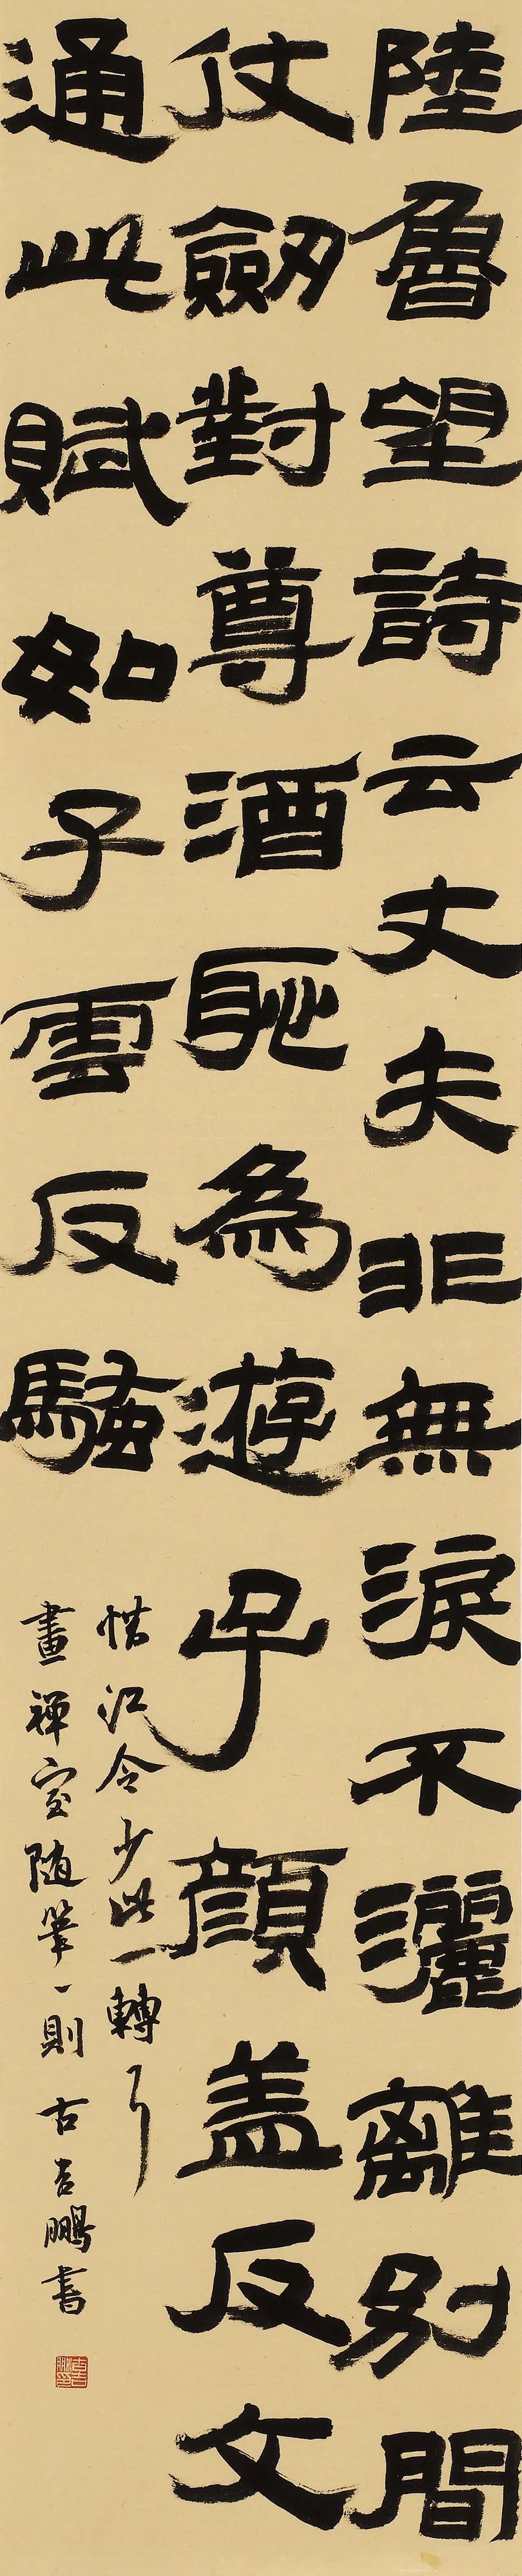 陸魯望詩云丈夫非無淚不灑離別間
仗劒對尊酒恥為遊子顔盖反文
通此賦如子雲反騷
惜江令少此一轉耳
畫禪室随筆一則 古吉鵬書